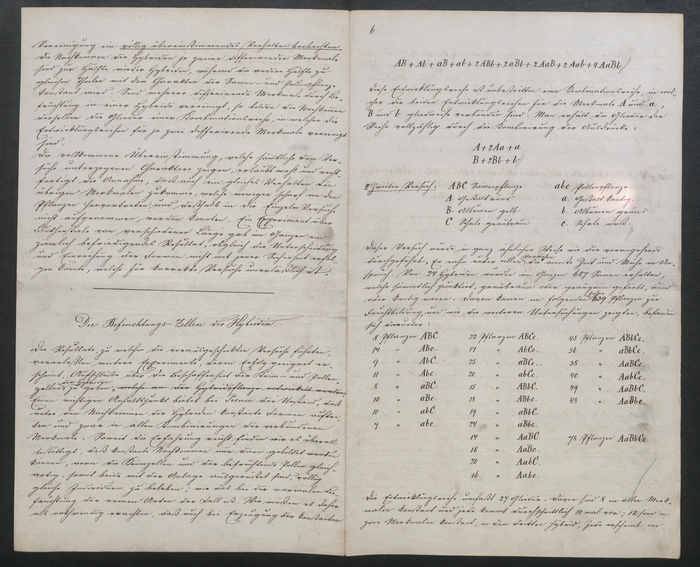 Vereinigung ein völlig übereinstimmendes Verhalten beobachten.
Die Nachkommen der Hybriden je zweier differirender Merkmale
sind zur Hälfte wieder Hybriden, während die andere Hälfte zu
gleichen Theilen mit dem Charakter der Samen und Pollenpflanze
constant wird. Sind mehrere differirende Merkmale durch Be-
fruchtung in einer Hybride vereinigt, so bilden die Nachkommen
derselben die Glieder einer Kombinationsreihe, in welcher die
Entwicklungsreihen für je zwei differirende Merkmale vereinigt
sind.
Die vollkommene Übereinstimmung, welche sämmtliche dem Ver-
suche unterzogenen Charaktere zeigen, erlaubt wohl und recht-
fertigt die Annahme, daß auch ein gleiches Verhalten den
übrigen Merkmalen zukomme, welche weniger scharf an den
Pflanzen hervortreten, und deshalb in die Einzeln-Versuche
nicht aufgenommen werden konnten. Ein Experiment über
Blüthenstiele von verschiedener Länge gab im Ganzen ein
ziemlich befriedigendes Resultat, obgleich die Unterscheidung
und Einreihung der Formen nicht mit jener Sicherheit erfol-
gen konnte, welche für correcte Versuche unerläßlich ist.
Die Befruchtungs-Zellen der Hybriden
Die Resultate, zu welchen die vorausgeschickten Versuche führten,
veranlaßten weitere Experimente, deren Erfolg geeignet er-
scheint, Aufschlüsse über die Beschaffenheit der Keim und Pollen-
zellen der Hybriden zu geben.
Einen wichtigen Anhaltspunkt bietet bei Pisum der Umstand, daß
unter den Nachkommen der Hybriden constante Formen auftre-
ten und zwar in allen Combinirungen der verbundenen
Merkmale. Soweit die Erfahrung reicht, finden wir es überall
bestätigt, daß constante Nachkommen nur dann gebildet werden
können, wenn die Keimzellen und der befruchtende Pollen gleich-
artig, somit beide mit der Anlage ausgerüstet sind, völlig
gleiche Individuen zu beleben, wie das bei der normalen Be-
fruchtung der reinen Arten der Fall ist. Wir müssen es daher
als nothwendig erachten, daß auch bei Erzeugung der constanten
6
AB + Ab + aB + ab + 2ABb + 2aBb + 2AaB + 2Aab + 4AaBb.
Diese Entwicklungsreihe ist unbestritten eine Kombinationsreihe, in wel-
cher die beiden Entwicklungsreihen für die Merkmale A und a,
B und b gliedweise verbunden sind. Man erhält die Glieder der
Reihe vollzählig durch die Kombinirung der Ausdrücke:
A + 2Aa + a
B + 2Bb + b
2. Zweiter Versuch: ABC Samenpflanze abc Pollenpflanze
A Gestalt rund a. Gestalt kantig.
B. Albumen gelb. b. Albumen grün
C. Schale graubraun c. Schale weiß
Dieser Versuch wurde in ganz ähnlicher Weise wie der vorangehende
durchgeführt. Er nahm unter allen Versuchen die meiste Zeit und Mühe in An-
spruch. Von 24 Hybriden wurden im Ganzen 687 Samen erhalten,
welche sämmtlich punktirt, graubraun oder graugrün gefärbt, rund
oder kantig waren. Davon kamen im folgenden Jahre 639 Pflanzen zur
Fruchtbildung, und wie die weiteren Untersuchungen zeigten, befanden
sich darunter:
8 Pflanzen ABC. 22 Pflanzen ABCc. 45 Pflanzen ABbCc.
14 " ABc. 17 " AbCc. 36 " aBbCc.
9 " AbC. 25 " aBCc. 38 " AaBCc.
11 " Abc. 20 " abCc. 40 " AabCc.
8 " aBC. 15 " ABbC. 49 " AaBbC.
10 " aBc. 18 " ABbc. 48 " AaBbc.
10 " abC. 19 " aBbC.
7 " abc. 24 " aBbc.
14 " AaBC. 78 Pflanzen AaBbCc.
18 " AaBc.
20 " AabC.
16 " Aabc.
Die Entwicklungsreihe umfaßt 27 Glieder. Davon sind 8 in allen Merk-
malen constant und jede kommt durchschnittlich 10 mal vor; 12 sind in
zwei Merkmalen constant, in dem dritten hybrid, jede erscheint im